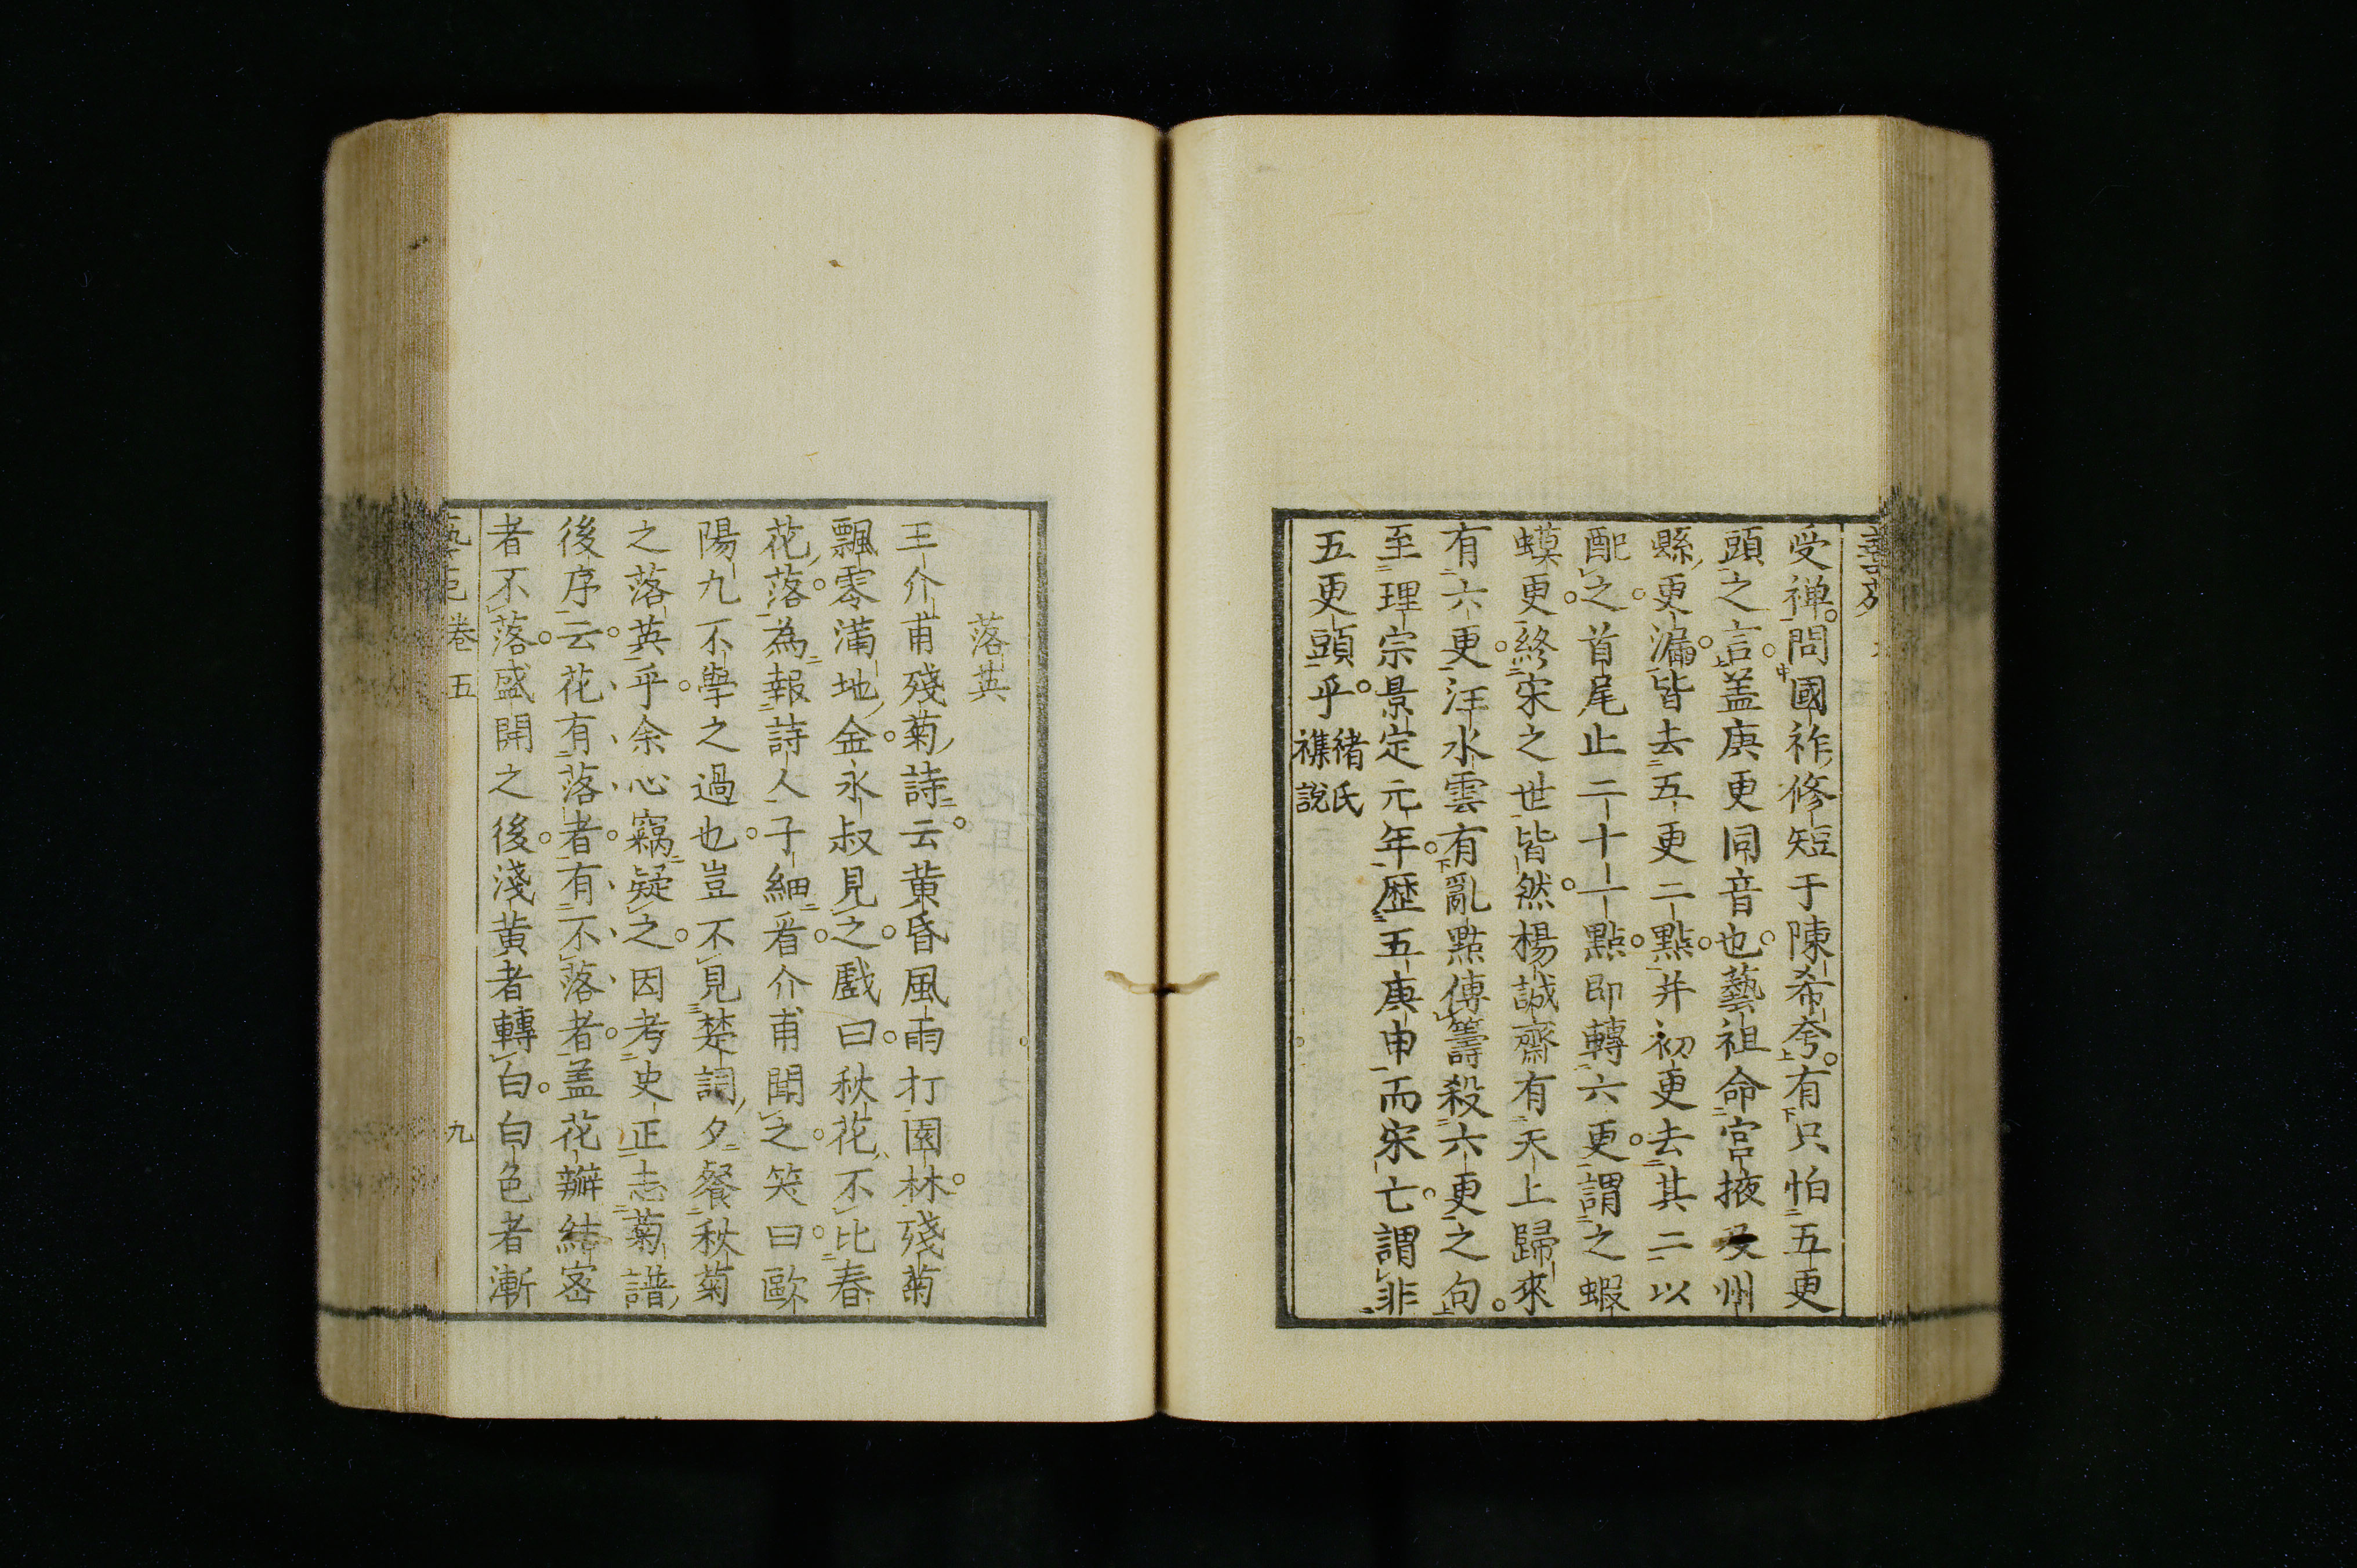 受禅問國祚修短于陳希夸有只怕五更
頭之言盖庚更同音也藝祖命宮掖及州
縣更漏皆去五更二點并初更去其二以
配之首尾止二十一點即轉六更謂之蝦
蟆更終宋之世皆然楊誠齋有天上歸來
有六更汪水雲有亂點傳籌殺六更之句
至理宗景定元年歴五庚申而宋亡謂非
五更頭乎
褚氏
襍説
落英
王介甫殘菊詩云黄昏風雨打園林殘菊
飄零滿地金永叔見之戲曰秋花不比春
花落為報詩人子細看介甫聞之笑曰歐
陽九不學之過也豈不見楚詞夕餐秋菊
之落英乎余心竊疑之因考史正志菊譜
後序云花有落者有不落者盖花瓣結宻
者不落盛開之後淺黄者轉白白色者漸
卷五
九